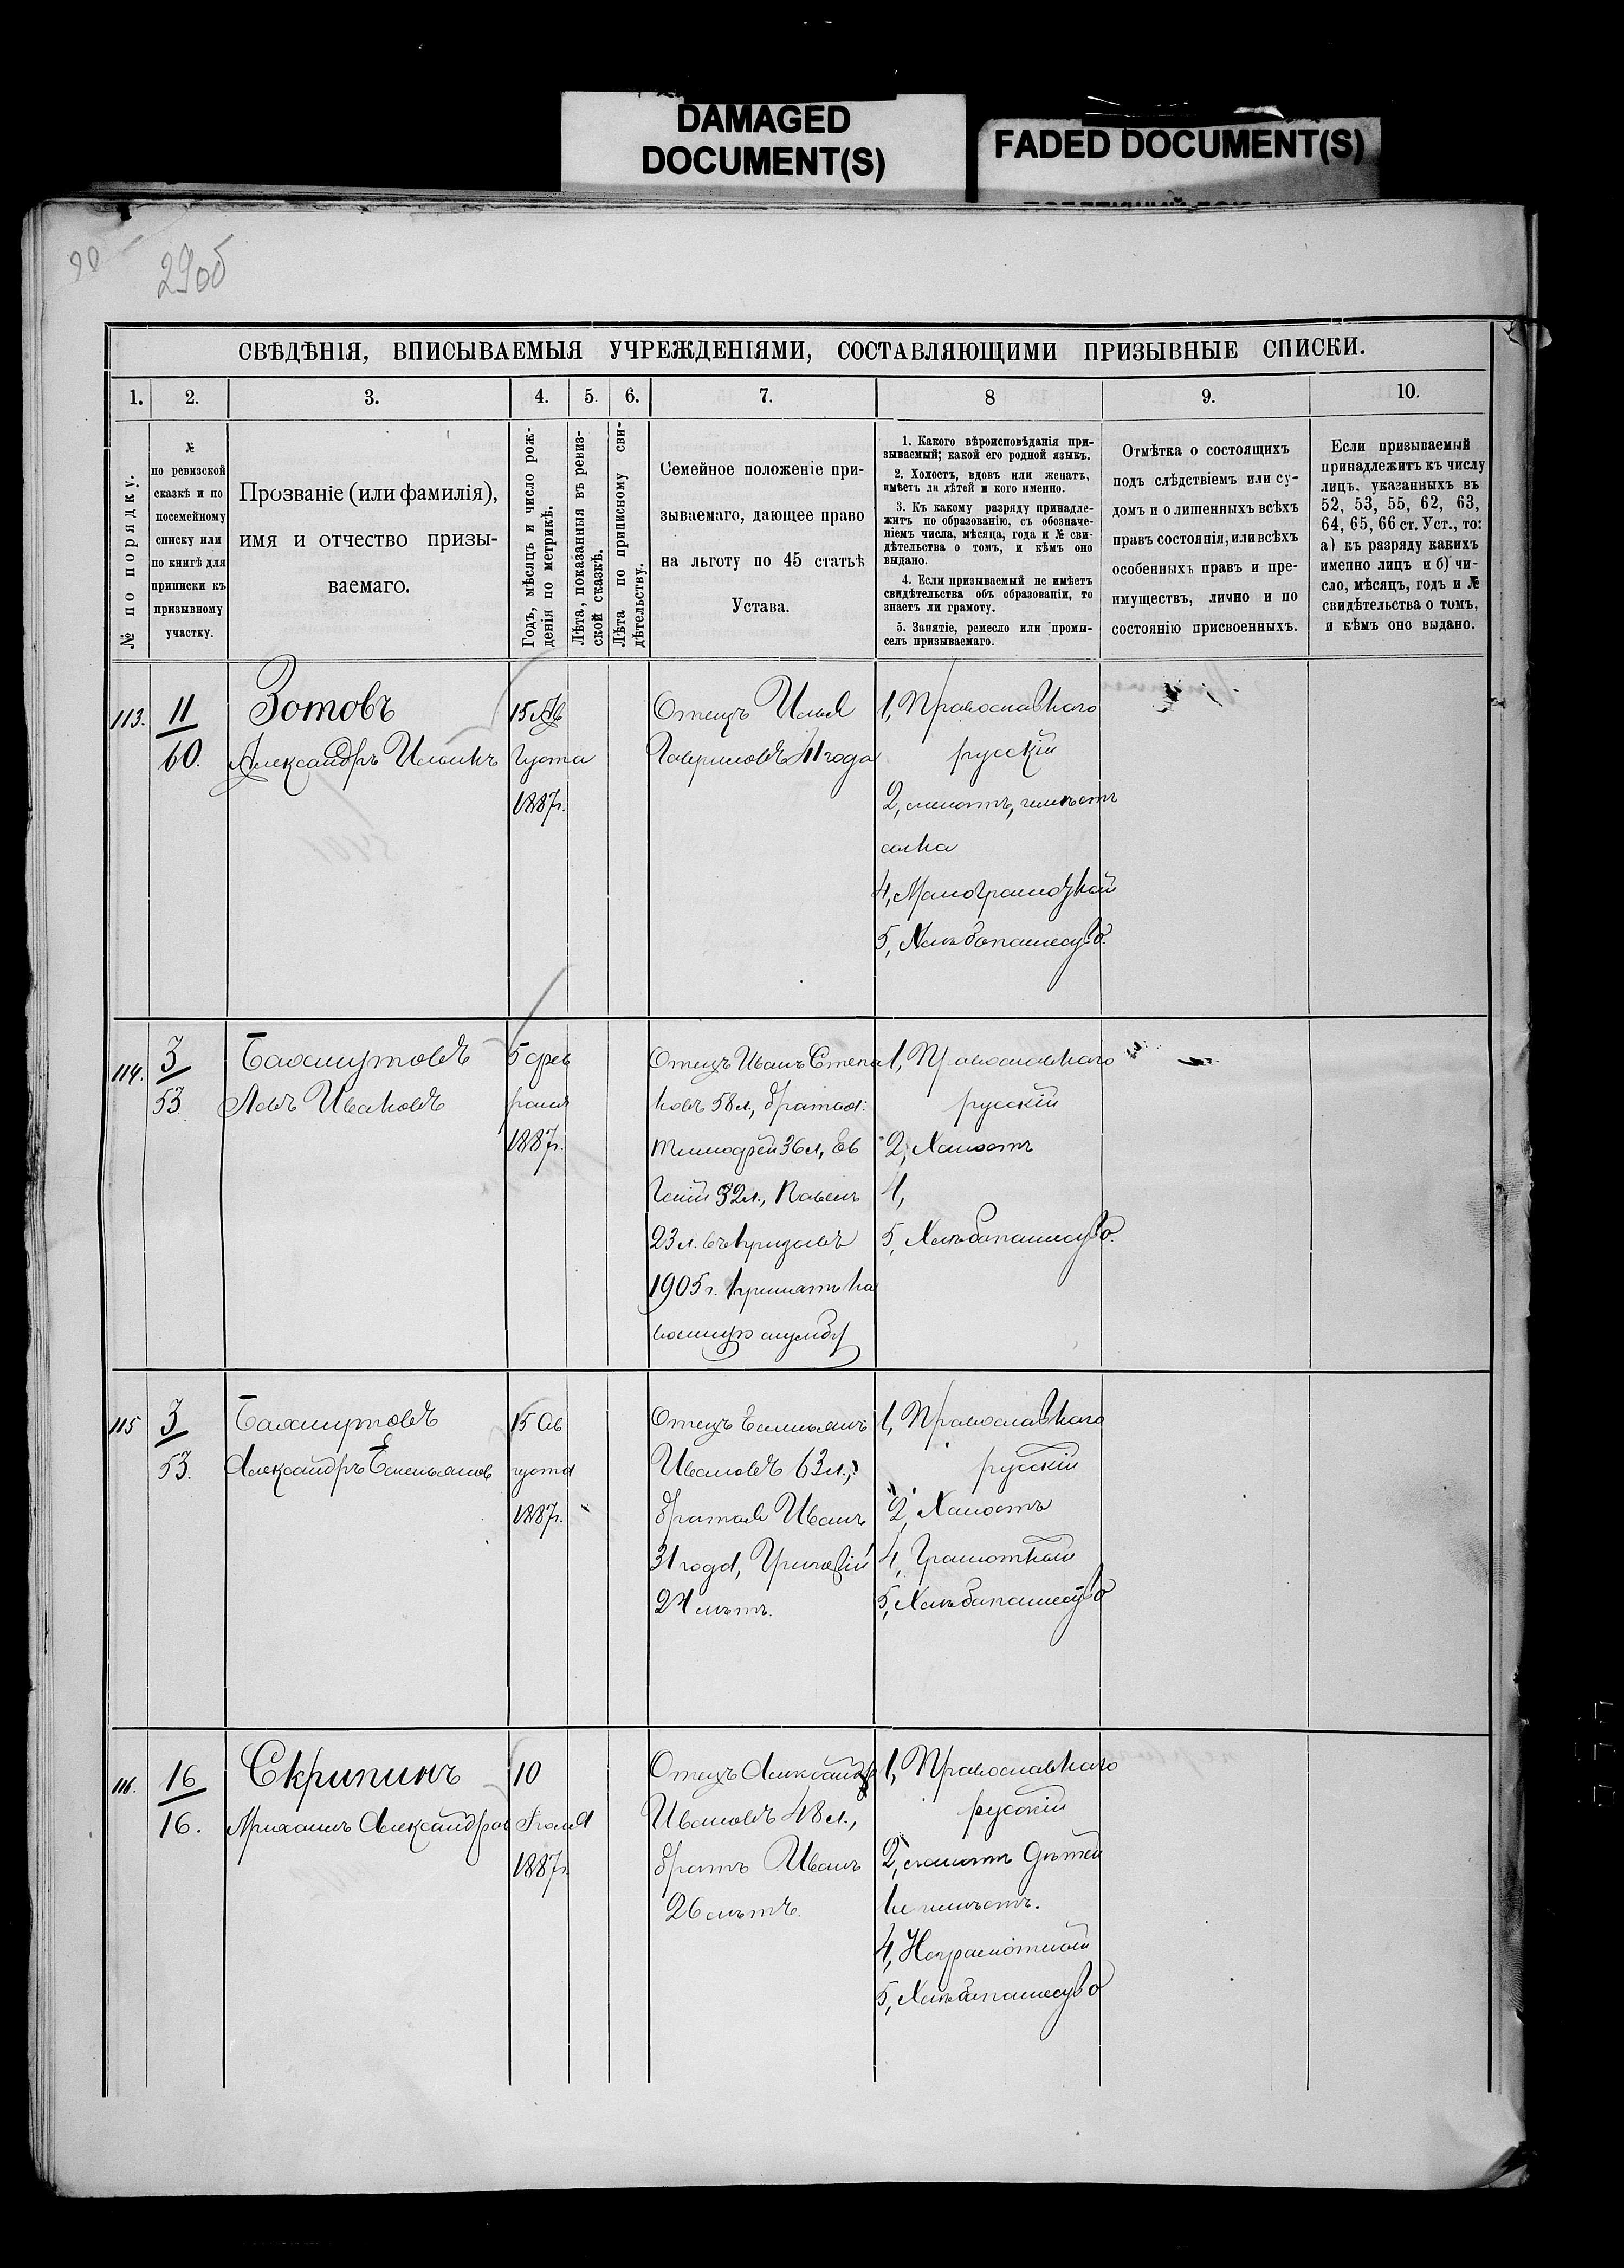 DAMAGED
DOCUMENT(S)
FADED DOCUMENT(S)
90
29об
СВѢДѢНІЯ, ВПИСЫВАЕМЫЯ УЧРЕЖДЕНІЯМИ, СОСТАВЛЯЮЩИМИ ПРИЗЫВНЫЕ СПИСКИ.
1. 2. 3. 4. 5. 6. 7. 8 9. 10.
№ по порядку.
№
по ревизской
сказкѣ и по
посемейному
списку или
по книгѣ для
приписки къ
призывному
участку.
Прозваніе (или фамилія),
имя и отчество призы-
ваемаго.
Годъ, мѣсяцъ и число рож-
денія по метрикѣ.
Лѣта, показанныя въ ревиз-
ской сказкѣ.
Лѣта по приписному сви-
дѣтельству.
Семейное положеніе при-
зываемаго, дающее право
на льготу по 45 статьѣ
Устава.
1. Какого вѣроисповѣданія при-
зываемый; какой его родной языкъ.
2. Холостъ, вдовъ или женатъ,
имѣетъ ли дѣтей и кого именно.
3. Къ какому разряду принадле-
житъ по образованію, съ обозначе-
ніемъ числа, мѣсяца, года и № сви-
дѣтельства о томъ, и кѣмъ оно
выдано.
4. Если призываемый не имѣетъ
свидѣтельства объ образованіи, то
знаетъ ли грамоту.
5. Занятіе, ремесло или промы-
селъ призываемаго.
Отмѣтка о состоящихъ
подъ слѣдствіемъ или су-
домъ и о лишенныхъ всѣхъ
правъ состоянія, или всѣхъ
особенныхъ правъ и пре-
имуществъ, лично и по
состоянію присвоенныхъ.
Если призываемый
принадлежитъ къ числу
лицъ, указанныхъ въ
52, 53, 55, 62, 63,
64, 65, 66 ст. Уст., то:
а) къ разряду какихъ
именно лицъ и б) чи-
сло, мѣсяцъ, годъ и №
свидѣтельства о томъ,
и кѣмъ оно выдано.
113.
11
60.
Зотовъ
Александръ Ильинъ
15 Ав
густа
1887г.
Отецъ Илья
Гавриловъ 41 года
1, Православнаго
русскій
2, женатъ, имѣетъ
сына
4, Малограмотный
5, Хлѣбопашество.
114.
3
53
Бахмутовъ
Левъ Ивановъ
5 фев
раля
1887г.
Отецъ Иванъ Степа
новъ 58 л, братья:
Тимофей 36 л, Ев
геній 32 л., Павелъ
23 л. въ призывъ
1905 г. принятъ на
военную службу
1, Православнаго
русскій
2, Холостъ
4,
5, Хлѣбопашество.
115
3
53.
Бахмутовъ
Александръ Емельянов
15 Ав
густа
1887г.
Отецъ Емельянъ
Ивановъ 63 л.,
братья Иванъ
31 года, Григорій
24 лѣтъ.
1, Православнаго
русскій
2, Холостъ
4, Грамотный
5, Хлѣбопашество
116.
16
16.
Скрипинъ
Михаилъ Александров
10
Іюля
1887г.
Отецъ Александръ
Ивановъ 48 л.,
братъ Иванъ
26 лѣтъ.
1, Православнаго
русскій
2, женатъ дѣтей
не имѣетъ.
4, Неграмотный
5, Хлѣбопашество